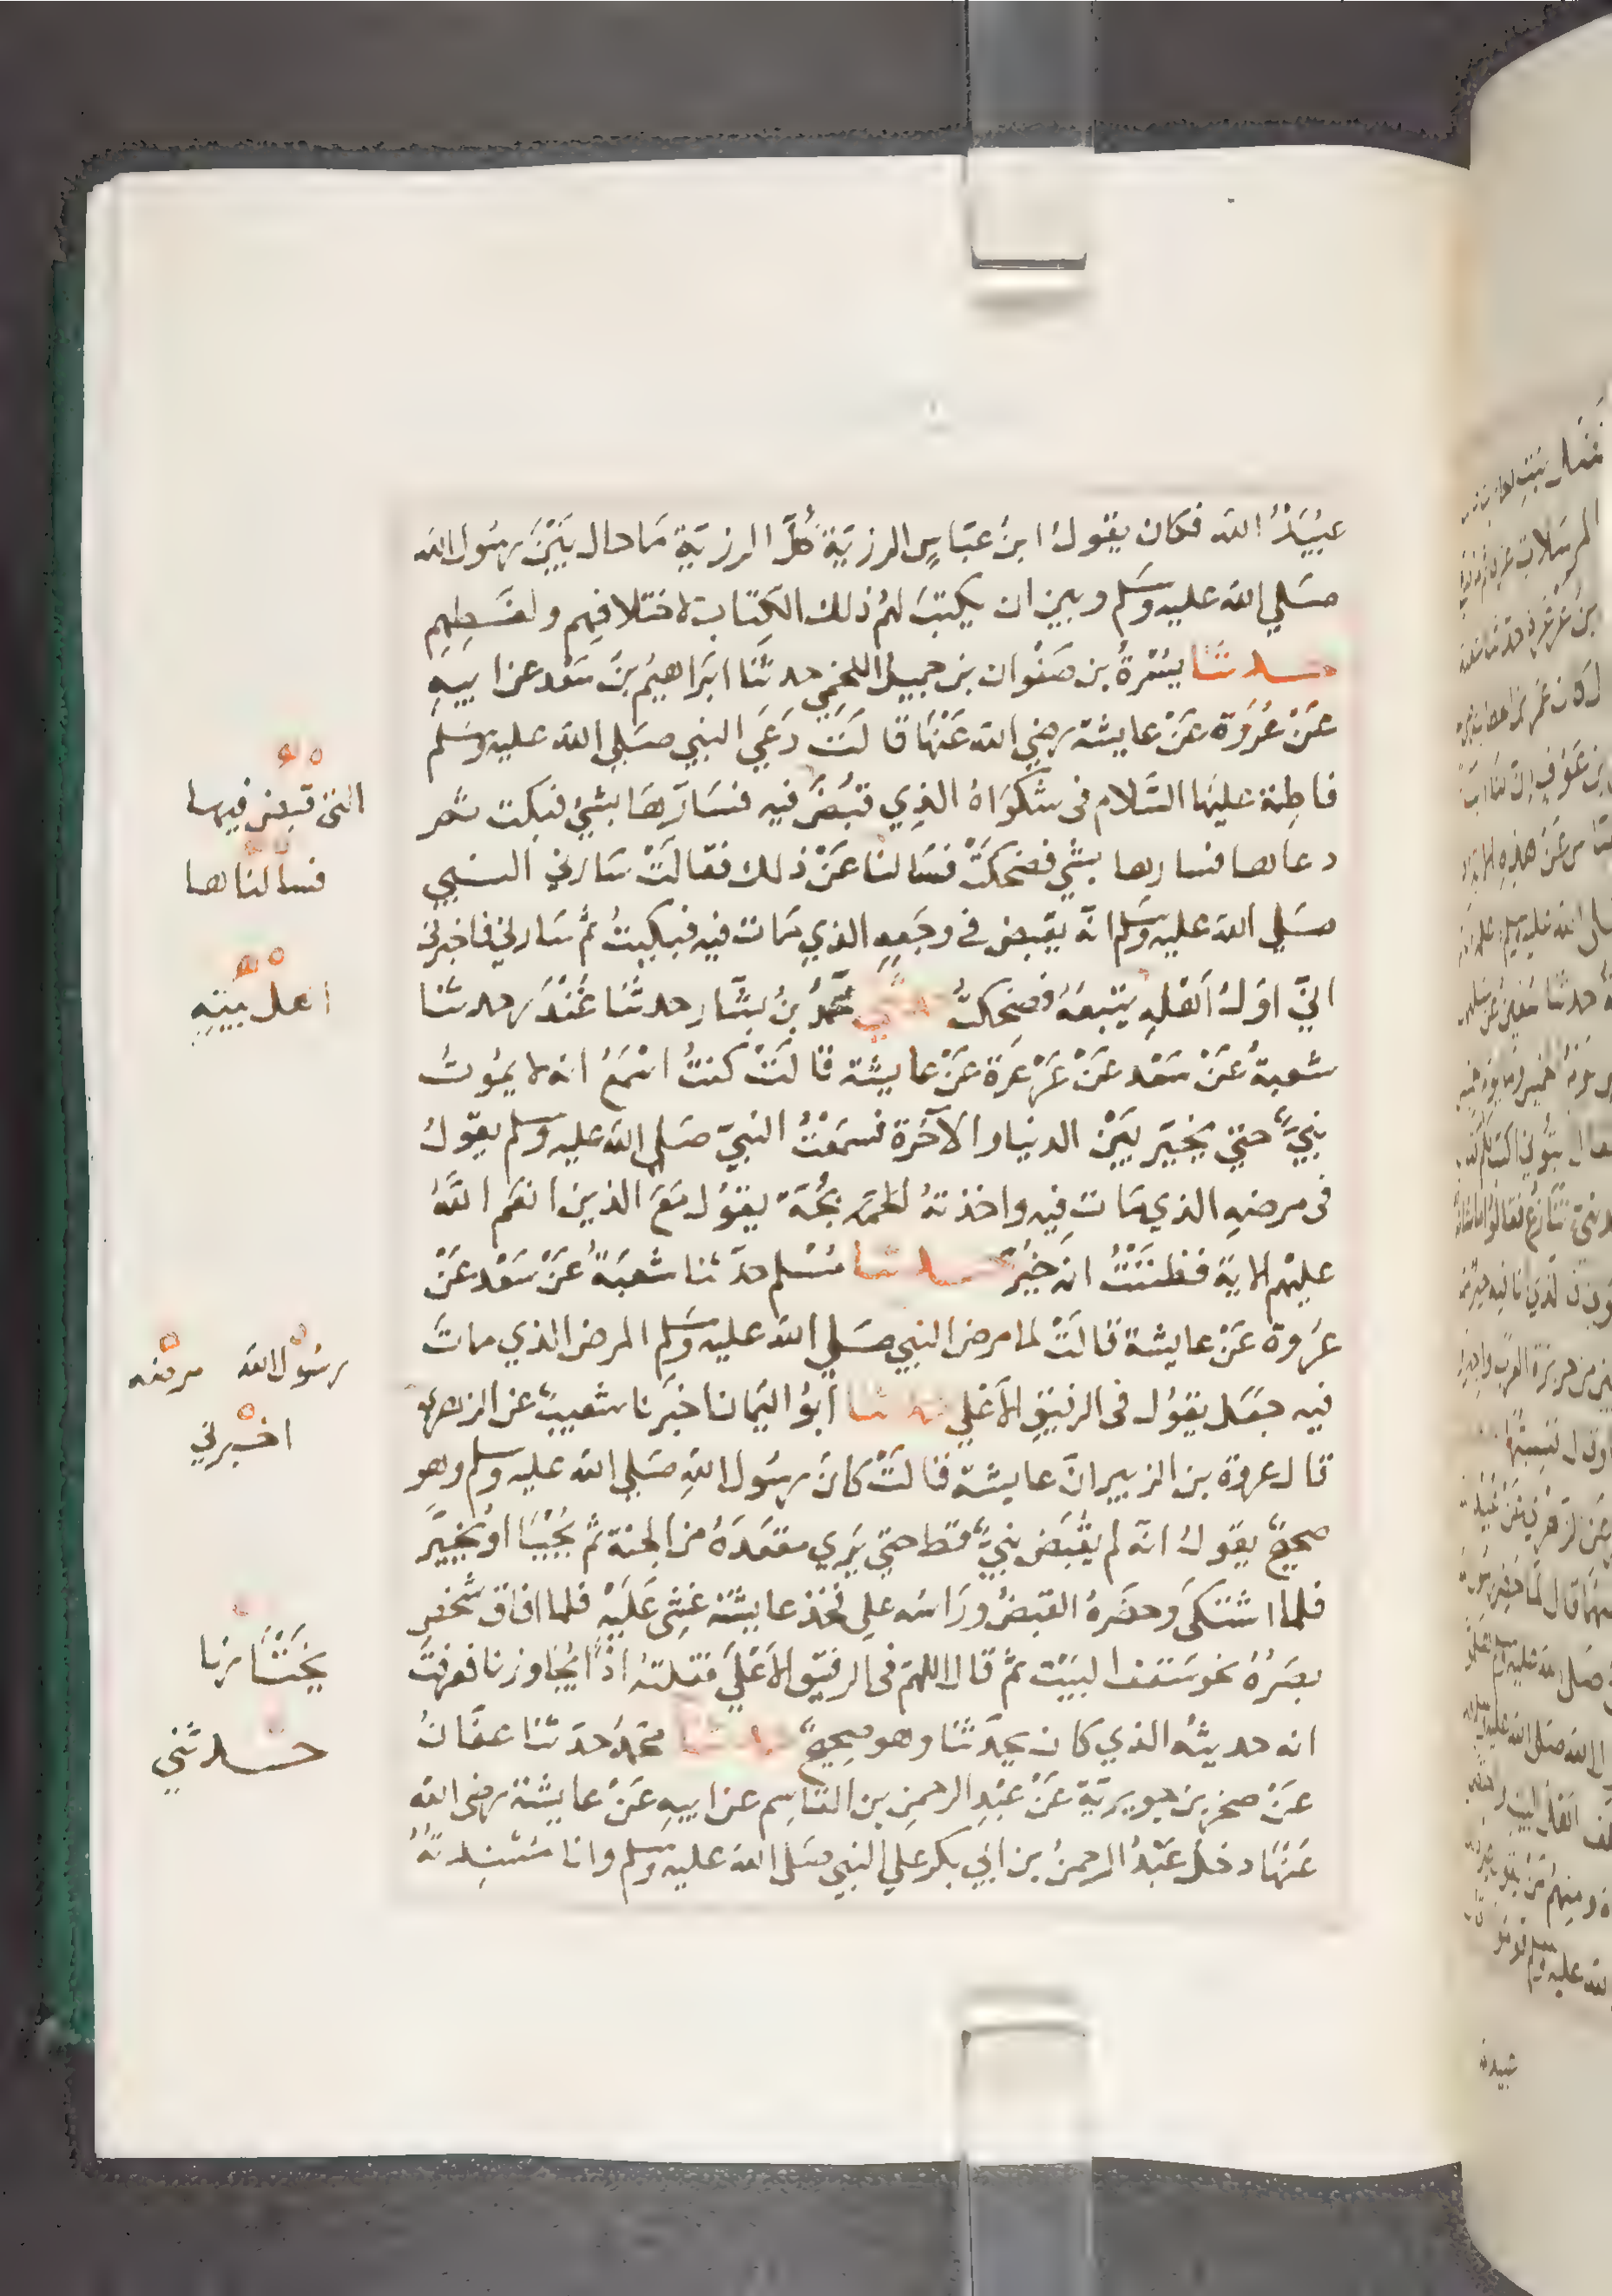 عبيدُ الله فكان يقول ابن عبّاسٍ الرزيّة كُلَّ الرزيّةِ مَا حال بَيْنَ رسُول الله
صَلي الله عليه وسَلم وبين ان يكتبَ لهُم ذلك الكِتاب لاختلافِهم ولغَطِهِم
حدثنا يسَرَةُ بن صَفْوان بن جميل اللخمِي حدثنَا ابرَاهيمُ بنُ سَعْد عن ابيهِ
عَنْ عُرْوَة عَنْ عايشة رضي الله عَنْهَا قالَتْ دَعَي النبي صَلي الله عليه وسَلم
فاطِمة عليهَا السَّلام فى شكْوَاهُ الذِي قُبضَ فيه فسَارّهَا بشئ فبكت ثم
دعاها فسارها بشي فضحكَتْ فسَالنا عَنْ ذلك فقالَتْ سَارنى النبي
صَلي الله عليه وسَلم انّه يقبض في وجَعِهِ الذي مَات فيه فبكيتُ ثُم سَارني فاخبرنى
انيّ اوّلُ اهْلِهِ يتْبعَهُ فضحكتُ حدثني محمّدُ بنُ بشَّار حدثنَا غُنْدَر حدثنا
شعبةُ عَنْ سَعْد عَنْ عُرْوَة عَنْ عايشة قالَتْ كنتُ اسْمَعُ انه لا يمُوتُ
نبيٌّ حتي يخيّر بَيْنَ الدنيا والآخرة فسَمعْتُ النبيّ صَلي الله عليه وسلم يقولُ
فى مرضهِ الذي مَات فِيه واخذتهُ بُحّة يقول مَعَ الذين انعَم اللهُ
عليْهم الاية فظننْتُ انه خُيّرَ حدثنا مُسْلم حدّثنا شعبَةُ عَنْ سَعْد عَنْ
عرُوة عَنْ عايشة قالَتْ لما مرض النبي صَلي الله عليه وسَلم المرض الذي ماتَ
فيه جعَل يقوُل فى الرفيقِ الأعْلي حدثنا ابوُ اليَمان اخبرَنا شعيبٌ عن الزهري
قال عروة بن الزبير انّ عايشة قالَتْ كانَ رسُول اللهِ صَلي الله عليه وسلم وهو
صحيحٌ يقولُ انّه لم يُقْبَض نبيٌّ قط حتي يَري مقعَدَهُ من الجنة ثُم يُحَيّا او يُخيَّر
فلما اشتكَى وحضَرهُ القبضُ ورَاسُه علي فخذ عايشة غشِى عَلَيْهِ فلما افاق شخص
بصَرُهُ نحو سَقف البَيْت ثم قال اللهم فى الرفيق الأعْليَ فقلتُ اذًا لا يُجاوزنا فعرفتُ
انه حديثهُ الذي كان يحدّثنا وهو صحيحٌ حدثنا محمّدُ حدّثنا عفّانُ
عَنْ صخر بن جويريَة عَنْ عَبْدِ الرحمنِ بن القاسِم عن ابيهِ عَنْ عايشة رضى الله
عَنْهَا دخلَ عَبْدُ الرحمنُ بن ابي بكر علي النبي صَلى الله عليه وسلم وانا مُسْنِدتُهُ
التى قبض فيها
فسالناها
اهل بيتِهِ
رسُول الله مرضه
اخبرني
يختَارنا
حدثني